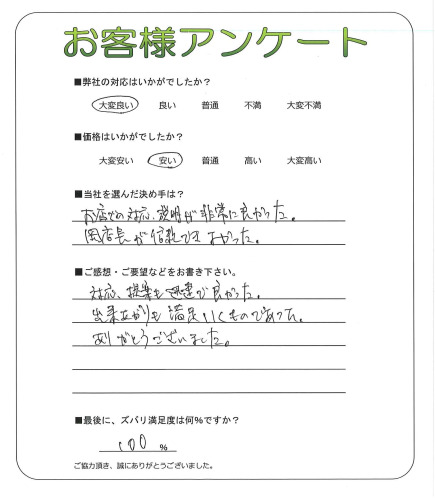 お客様アンケート
■弊社の対応はいかがでしたか？
大変良い 良い 普通 不満 大変不満
■価格はいかがでしたか？
大変安い 安い 普通 高い 大変高い
■当社を選んだ決め手は？
お店での対応、説明が非常に良かった。
岡店長が信頼でき よかった。
■ご感想・ご要望などをお書き下さい。
対応、提案も迅速で良かった。
出来上がりも満足いくものであった。
ありがとうございました。
■最後に、ズバリ満足度は何％ですか？
100 %
ご協力頂き、誠にありがとうございました。